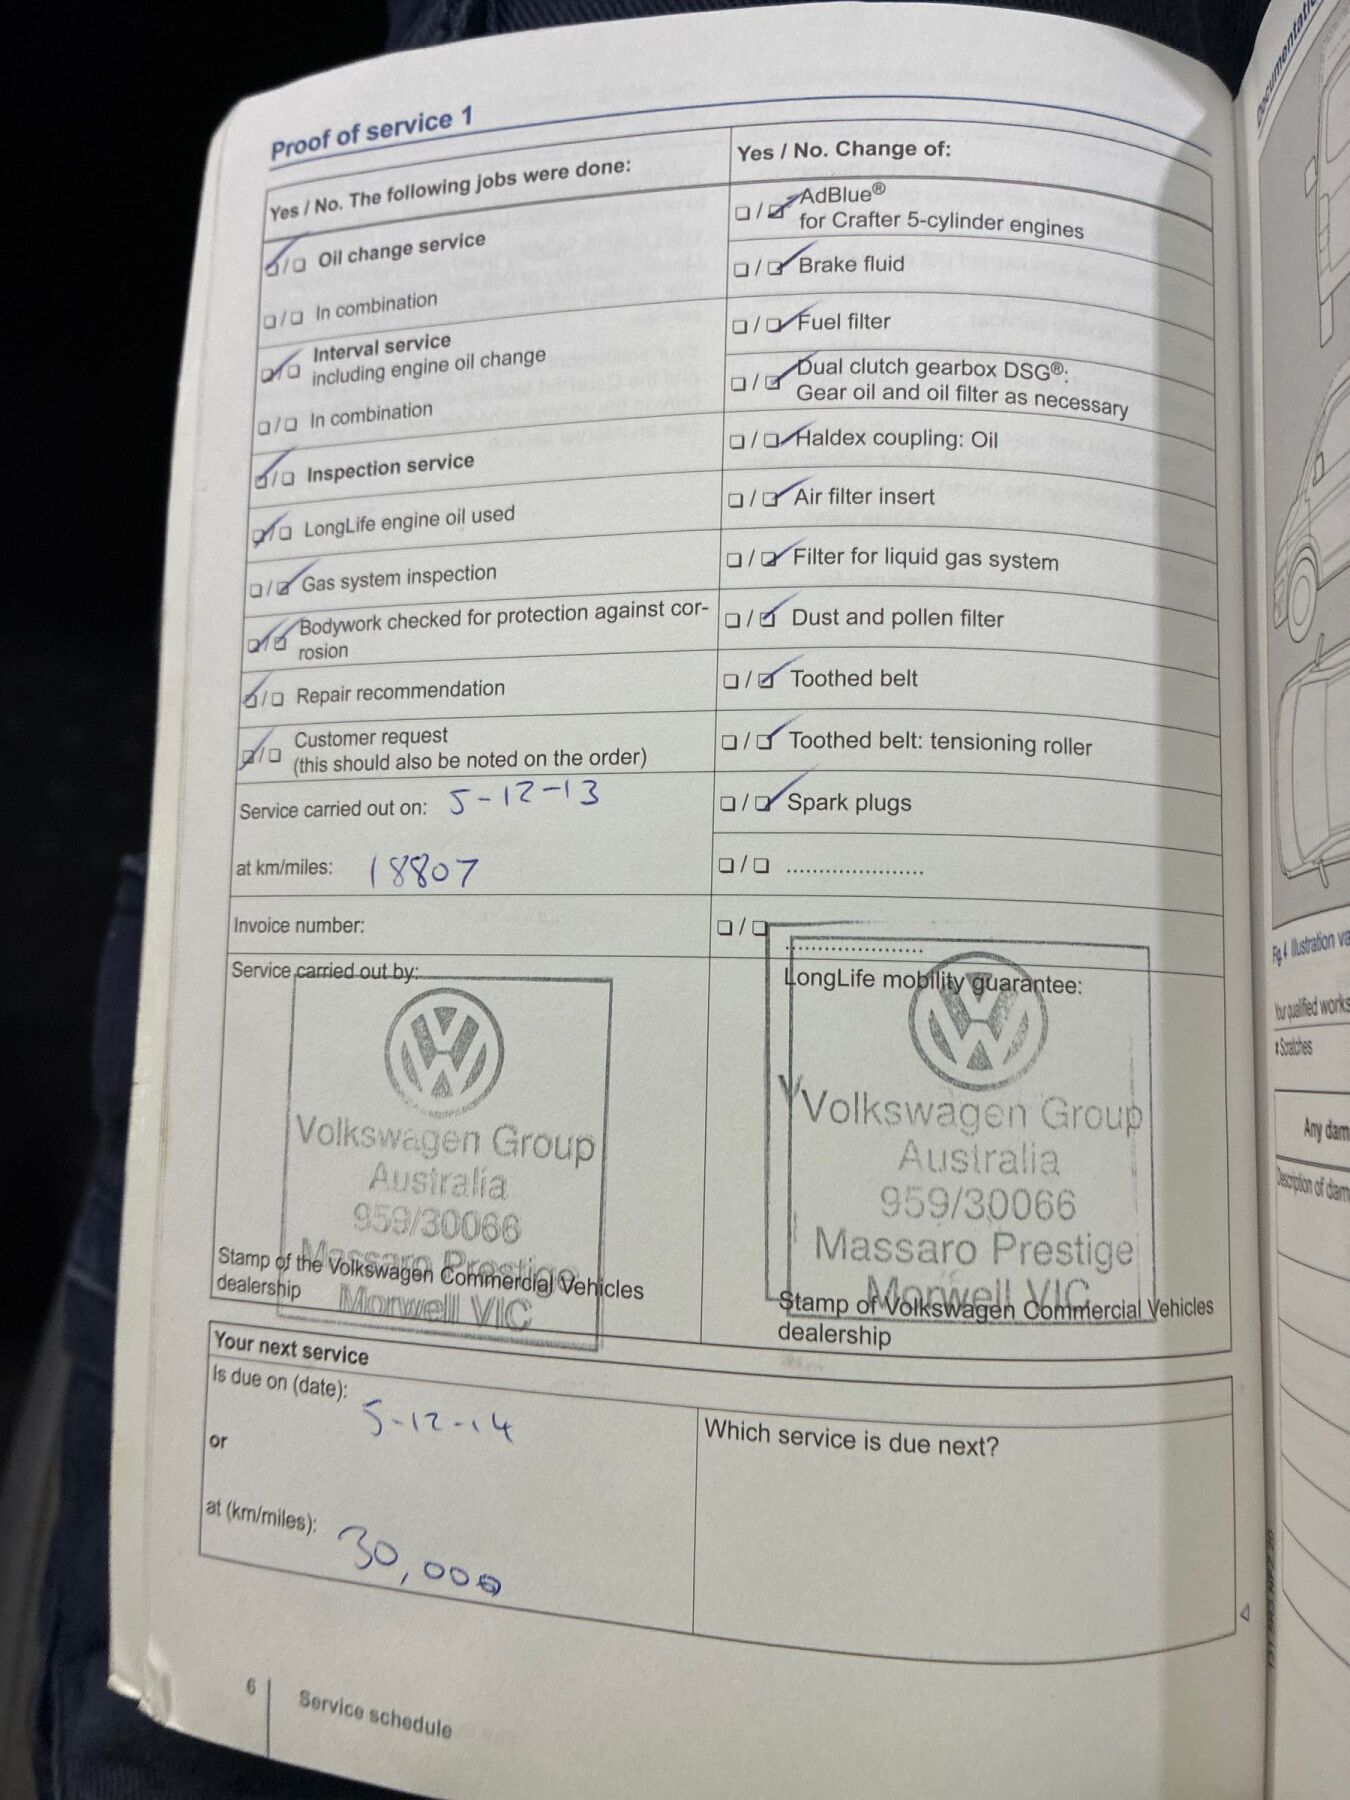 Proof of service 1
Yes / No. The following jobs were done:
Oil change service
In combination
Interval service
including engine oil change
In combination
Inspection service
LongLife engine oil used
Gas system inspection
Bodywork checked for protection against cor-
rosion
Repair recommendation
Customer request
(this should also be noted on the order)
Service carried out on: 5-12-13
at km/miles: 18807
Invoice number:
Service carried out by:
Volkswagen Group
Australia
959/30066
Massaro Prestige
Morwell VIC
Stamp of the Volkswagen Commercial Vehicles
dealership
Yes / No. Change of:
AdBlue®
for Crafter 5-cylinder engines
Brake fluid
Fuel filter
Dual clutch gearbox DSG®:
Gear oil and oil filter as necessary
Haldex coupling: Oil
Air filter insert
Filter for liquid gas system
Dust and pollen filter
Toothed belt
Toothed belt: tensioning roller
Spark plugs
.....................
.....................
LongLife mobility guarantee:
Volkswagen Group
Australia
959/30066
Massaro Prestige
Morwell VIC
Stamp of Volkswagen Commercial Vehicles
dealership
Your next service
Is due on (date): 5-12-14
or
at (km/miles): 30,000
Which service is due next?
6
Service schedule
Fig. 4 Illustration
Your qualified
x Scratches
Any
Description of